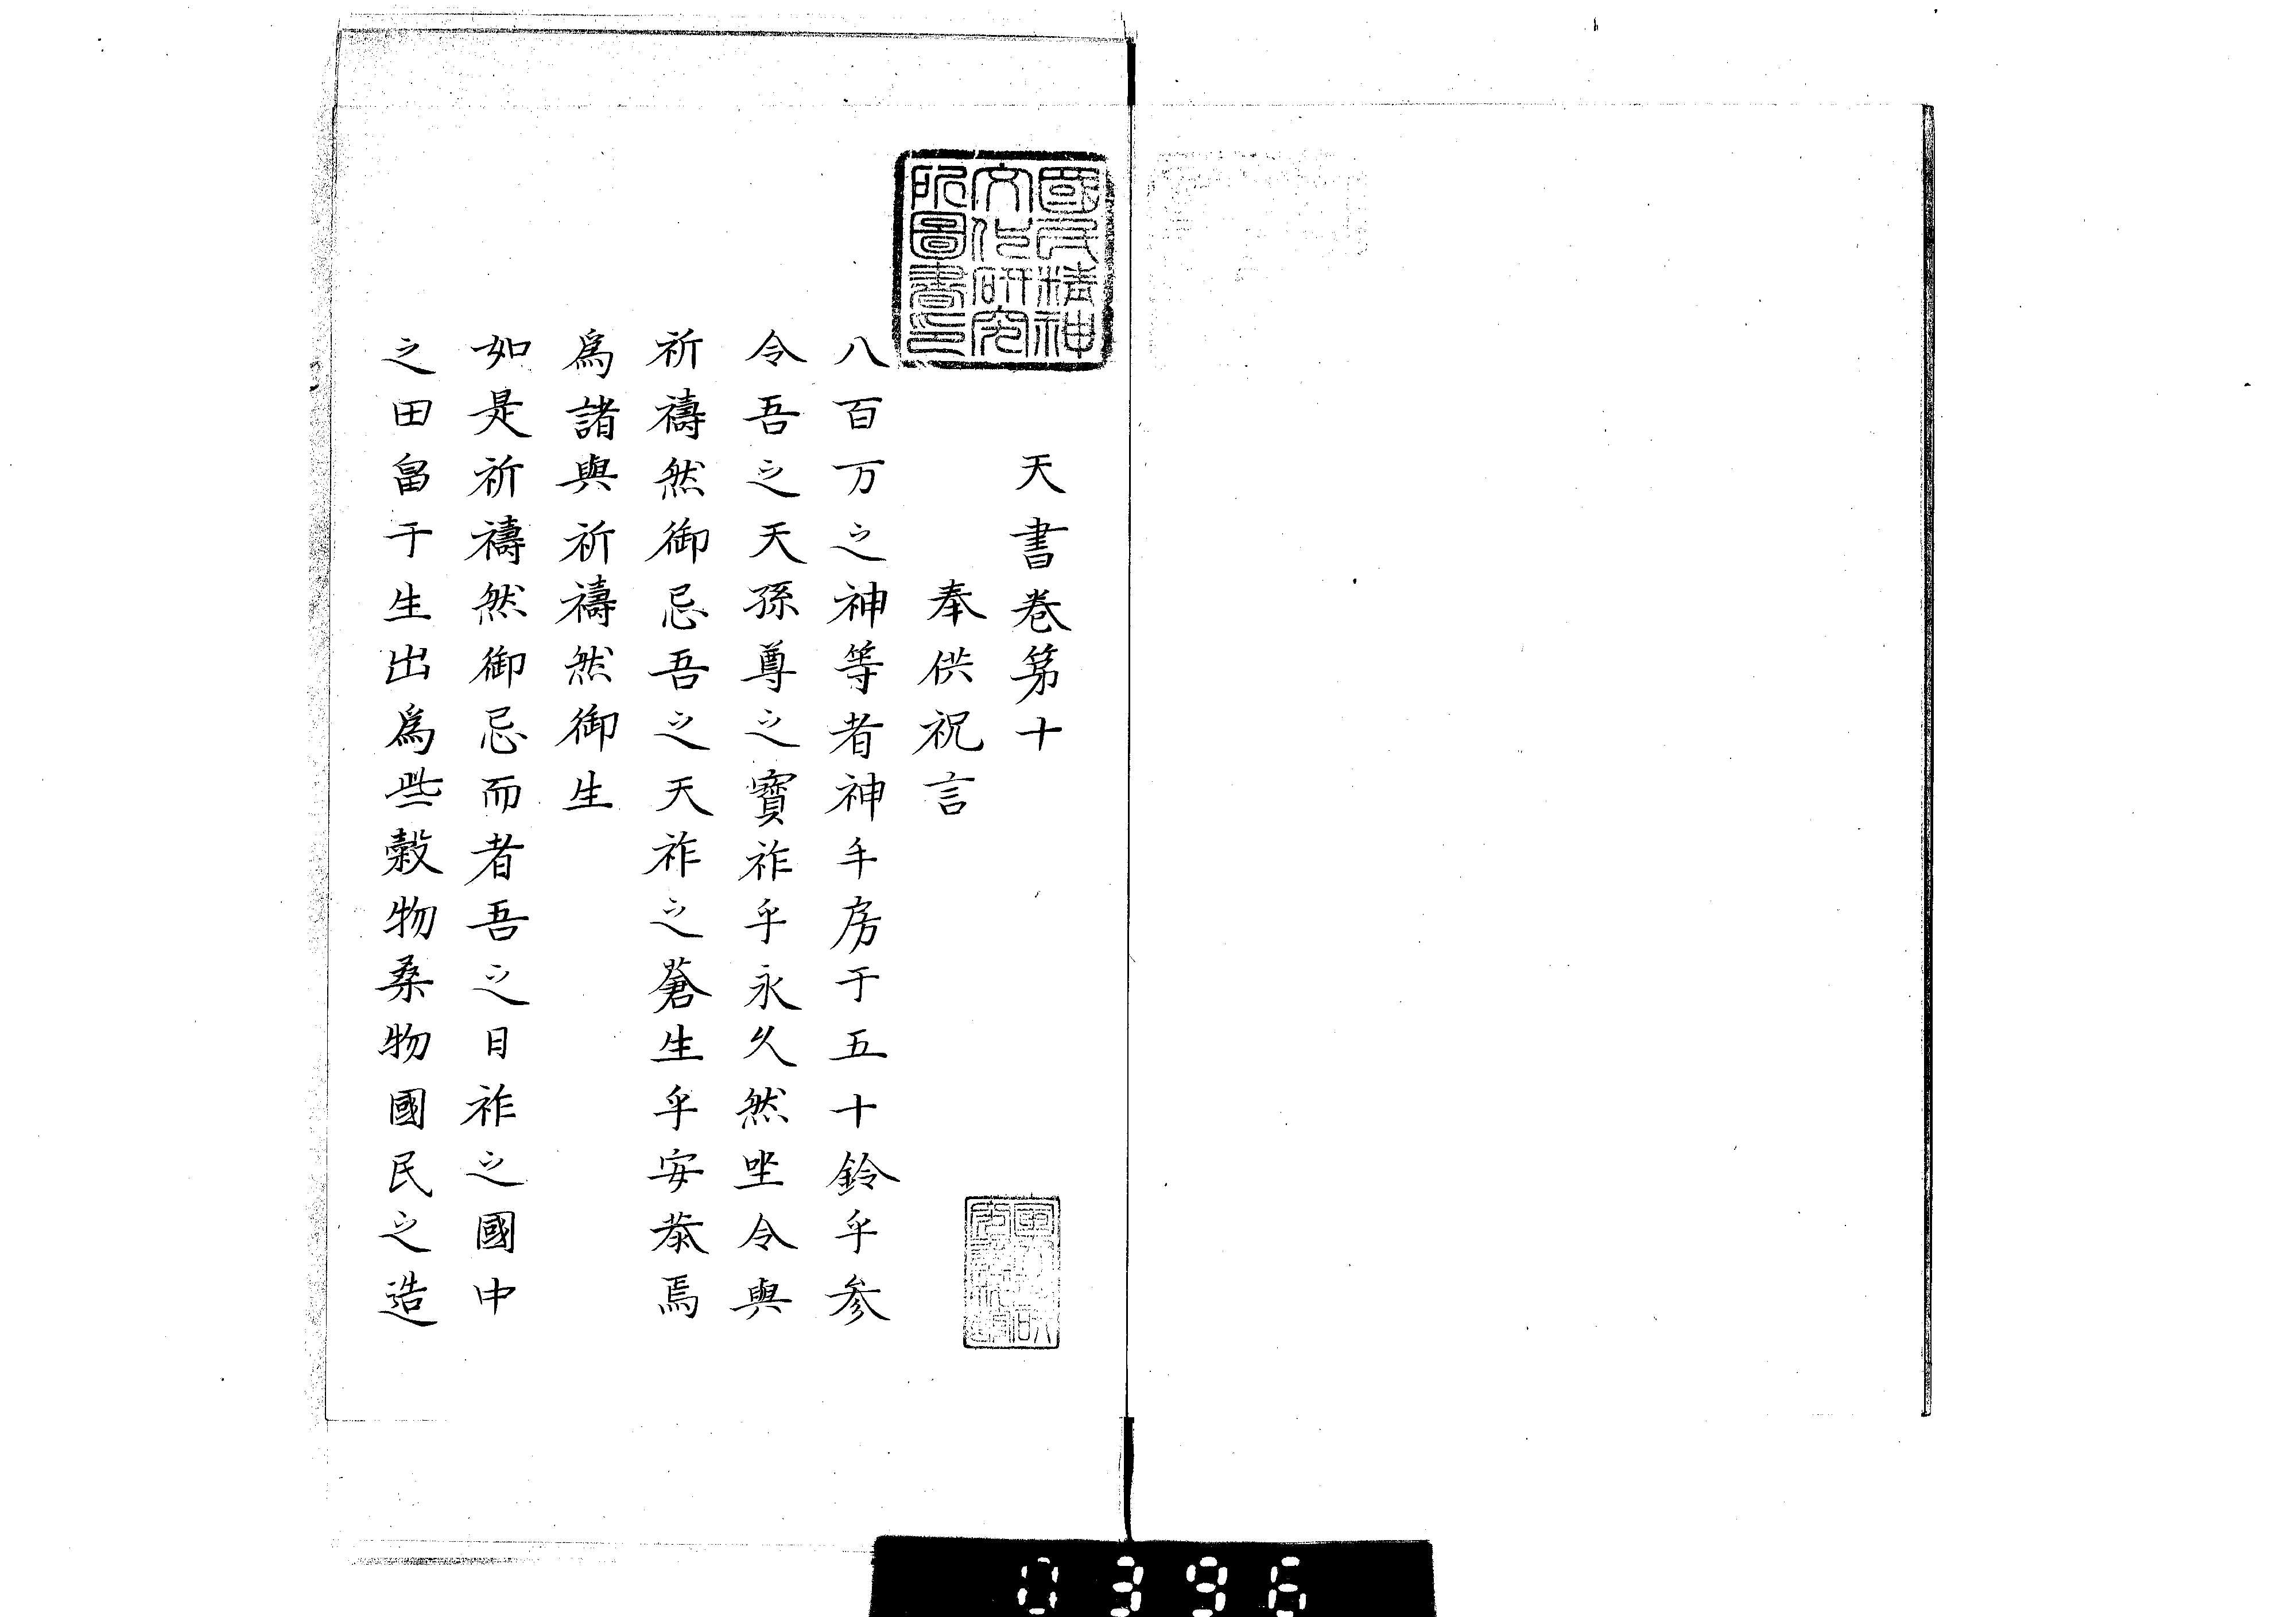 國民精神
文化研究
所圖書印
天書卷第十
奉供祝言
八百万之神等者神手房于五十鈴乎参
令吾之天孫尊之寶祚乎永久然坐令與
祈禱然御忌吾之天祚之蒼生乎安恭焉
爲諸與祈禱然御生
如是祈禱然御忌而者吾之日祚之國中
之田畠于生出爲些穀物桑物國民之造
0396